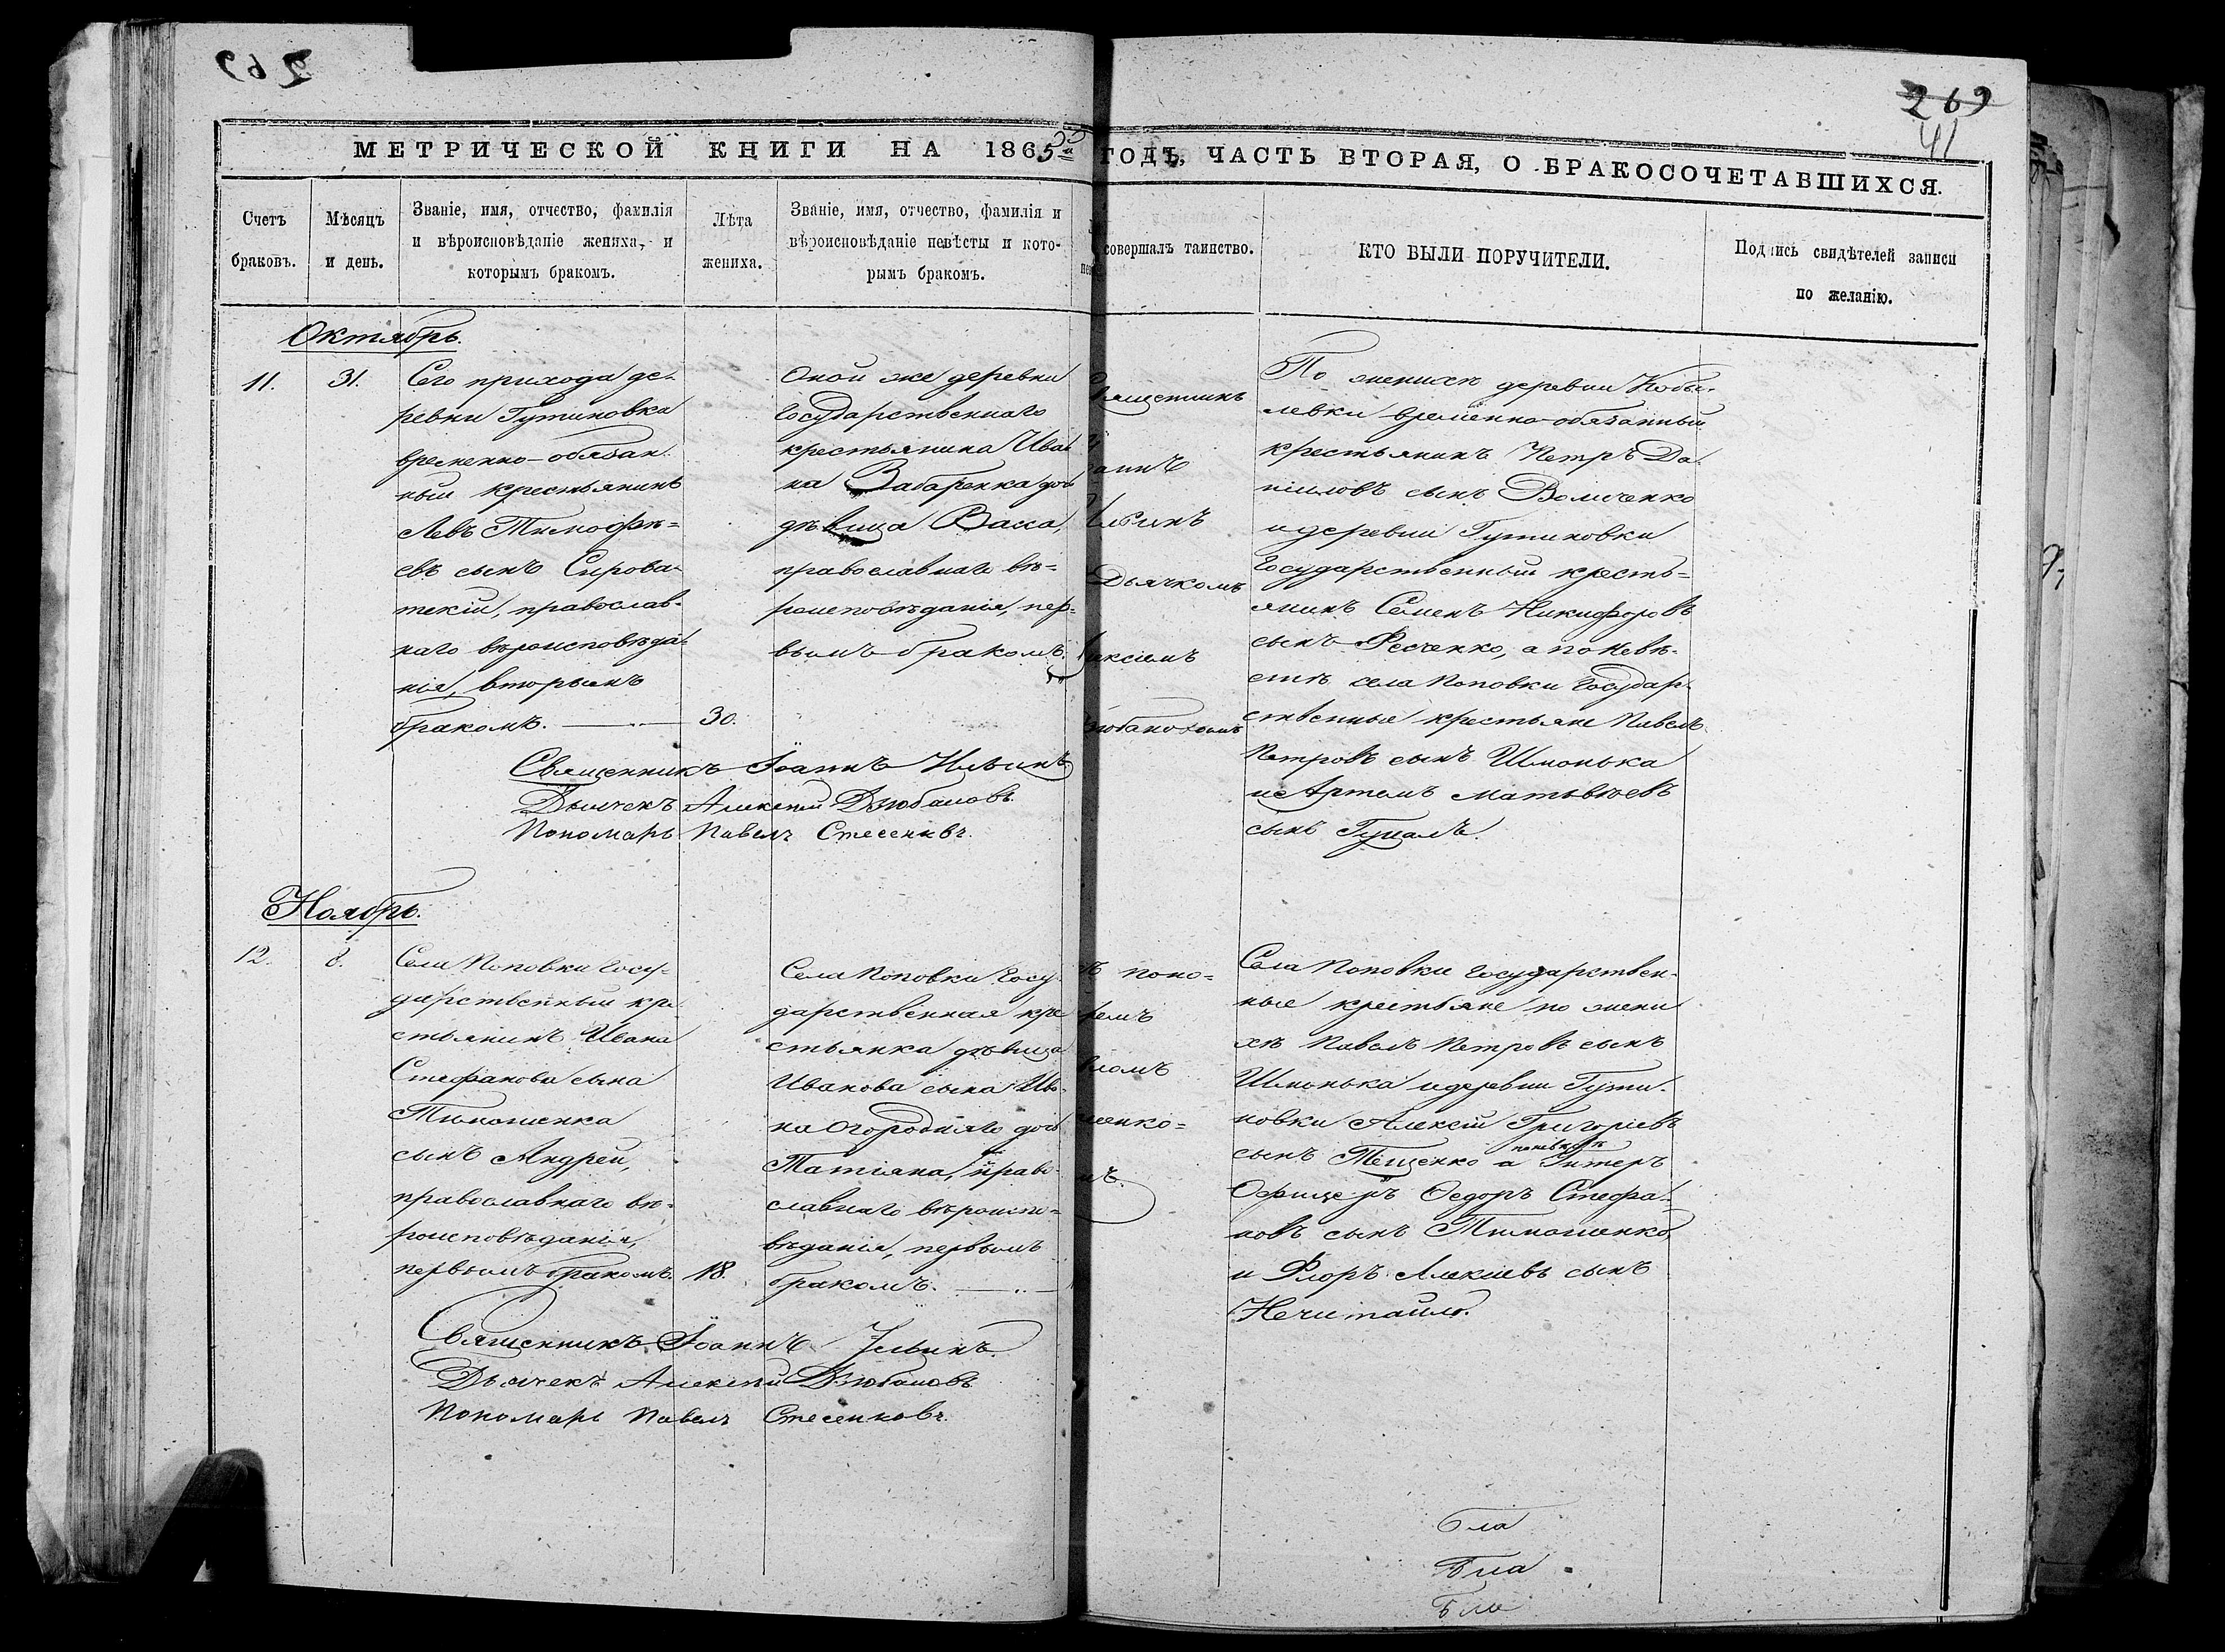 269
269
41
МЕТРИЧЕСКОЙ КНИГИ НА 1865 ГОДЪ, ЧАСТЬ ВТОРАЯ, О БРАКОСОЧЕТАВШИХСЯ.
Счетъ
браковъ.
Мѣсяцъ
и день.
Званіе, имя, отчество, фамилія
и вѣроисповѣданіе жениха, и
которымъ бракомъ.
Лѣта
жениха.
Званіе, имя, отчество, фамилія и
вѣроисповѣданіе невѣсты и кото-
рымъ бракомъ.
совершалъ таинство.
КТО БЫЛИ ПОРУЧИТЕЛИ.
Подпись свидѣтелей записи
по желанію.
Октябрь.
11.
31.
Сего прихода де-
ревни Гутиновка
временно-обязан-
ный крестьянинъ
Левъ Тимофѣ=
евъ сынъ Сирова-
тскій, православ-
наго вѣроисповѣда-
нія, вторымъ
бракомъ.
30.
Оной же деревни
Государственнаго
крестьянина Ива-
на дочь
дѣвица Васса,
православнаго вѣ=
роисповѣданія, пер=
вымъ бракомъ.
Священникъ
Іоаннъ
Ильинъ
съ
Дьячкомъ
Алексіемъ
Дзюбановымъ
По женихѣ деревни Кобы-
левки временно-обязанный
крестьянинъ Петръ Да-
ниловъ сынъ Величенко
и деревни Гутиновки
Государственный кресть=
янинъ Семенъ Никифоровъ
сынъ Фесченко, а по невѣ-
стѣ села Поповки Государ-
ственные крестьяне Павелъ
Петровъ сынъ Шмонька
и Артемъ Матвѣевъ
сынъ
Священникъ Іоаннъ Ильинъ
Дьячекъ Алексѣй Дзюбановъ.
Пономарь Павелъ
Ноябрь.
12.
8.
Села Поповки Госу-
дарственный кре-
стьянинъ Ивана
Стефанова сына
Тимошенка
сынъ Андрей,
православнаго вѣ-
роисповѣданія,
первымъ бракомъ.
18.
Села Поповки Госу-
дарственная кре-
стьянка дѣвица
Иванова сына Ива-
на Огороднаго дочь
Татіана, право-
славнаго вѣроиспо-
вѣданія, первымъ
бракомъ.
съ поно=
маремъ
Павломъ
Села Поповки Государствен-
ные крестьяне по жени
хѣ Павелъ Петровъ сынъ
Шмонька и деревни Гути-
новки Алексій Григоріевъ
по невѣстѣ
сынъ Тещенко а Унтеръ
Офицеръ Ѳедоръ Стефа-
новъ сынъ Тимошенко
и Флоръ Алексіевъ сынъ
Нечитайло.
Священникъ Іоаннъ Ильинъ.
Дьячекъ Алексѣй Дзюбановъ
Пономарь Павелъ